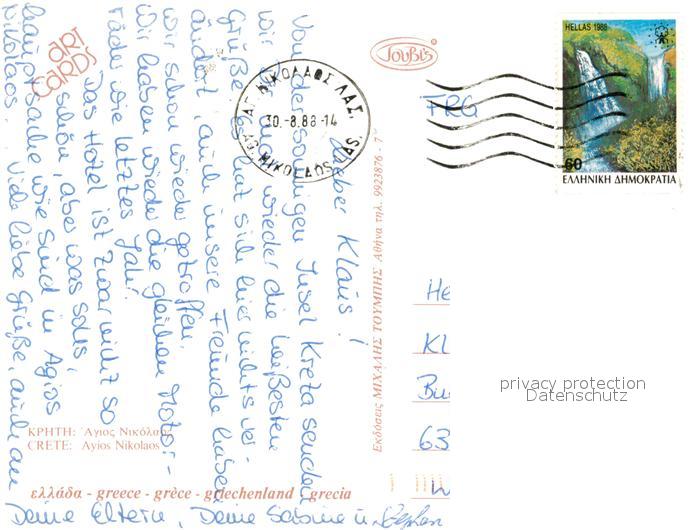 Lieber Klaus!
Von der sonnigen Insel Kreta senden
wir Dir mal wieder die heißesten
Grüße. Es hat sich hier nichts ver-
ändert, auch unsere Freunde haben
wir schon wieder getroffen.
Wir haben wieder die gleichen Motor-
räder wie letztes Jahr.
Das Hotel ist zwar nicht so
schön, aber was solls,
Hauptsache wir sind in Agios
Nikolaos. Viele liebe Grüße, auch an
Deine Eltern, Deine Sabine u. Stephan
ART
CARDS
ΚΡΗΤΗ: Ἅγιος Νικόλαος
CRETE: Ayios Nikolaos
ελλάδα - greece - grèce - griechenland - grecia
Toubi's
Εκδόσεις ΜΙΧΑΛΗΣ ΤΟΥΜΠΗΣ Αθήνα τηλ. 9923876 - 7
ΑΓ. ΝΙΚΟΛΑΟΣ ΛΑΣ.
30.-8.88-14
AG. NIKOLAOS LAS.
HELLAS 1988
60
ΕΛΛΗΝΙΚΗ ΔΗΜΟΚΡΑΤΙΑ
FRG
He
Kl
Bu
63
W
privacy protection
Datenschutz